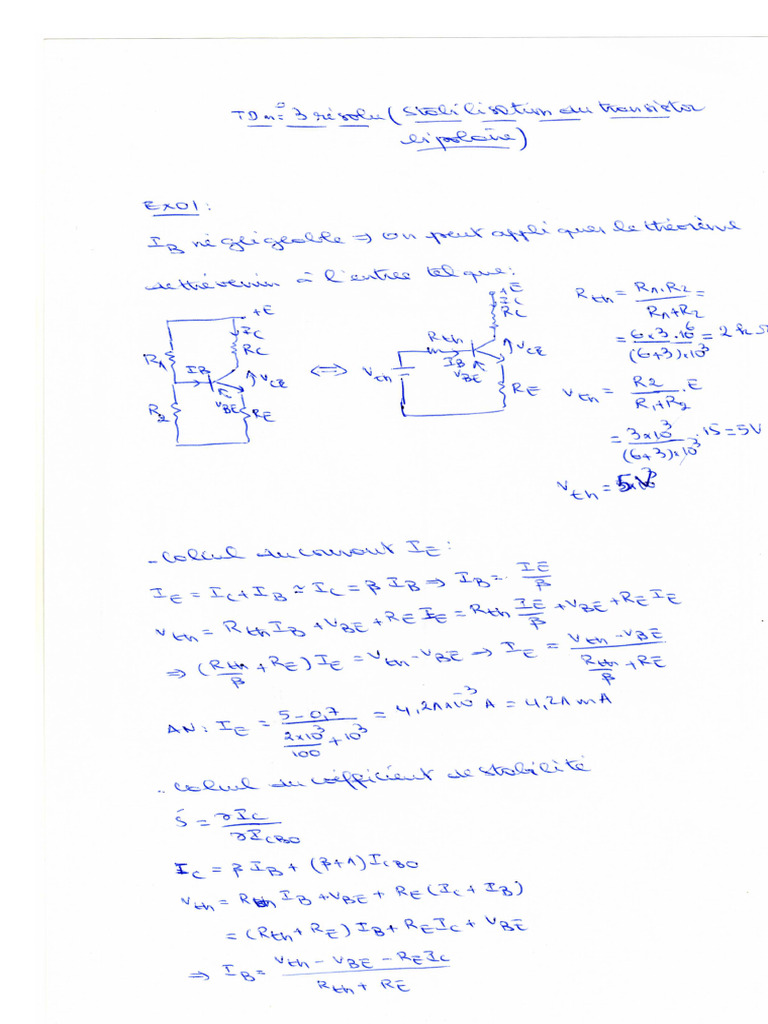 TD n°=3 résolu (Stabilisation du transistor
bipolaire)
Ex01 :
I_B négligeable ⇒ on peut appliquer le théorème
de thévenin à l'entrée tel que :
+E
I_C
R_C
R_1
I_B
V_CE
V_BE
R_2
R_E
⇔
+E
I_C
R_C
R_th
I_B
V_CE
V_th
V_BE
R_E
R_th = R_1.R_2 / R_1+R_2 =
= 6.3.10^6 / (6+3).10^3 = 2 k
V_th = R2 / R_1+R_2 . E
= 3×10^3 / (6+3)×10^3 . 15 = 5V
V_th = 5V
- Calcul du courant I_E :
I_E = I_C + I_B ≃ I_C = β I_B ⇒ I_B = I_E / β
V_th = R_th I_B + V_BE + R_E I_E = R_th I_E / β + V_BE + R_E I_E
⇒ (R_th / β + R_E) I_E = V_th - V_BE ⇒ I_E = V_th - V_BE / R_th / β + R_E
AN : I_E = 5 - 0,7 / 2×10^3 / 100 + 10^3 = 4,21×10^-3 A = 4,21 mA
- Calcul du coéfficient de stabilité
S = ∂I_C / ∂I_CB0
I_C = β I_B + (β+1) I_CB0
V_th = R_th I_B + V_BE + R_E (I_C + I_B)
= (R_th + R_E) I_B + R_E I_C + V_BE
⇒ I_B = V_th - V_BE - R_E I_C / R_th + R_E